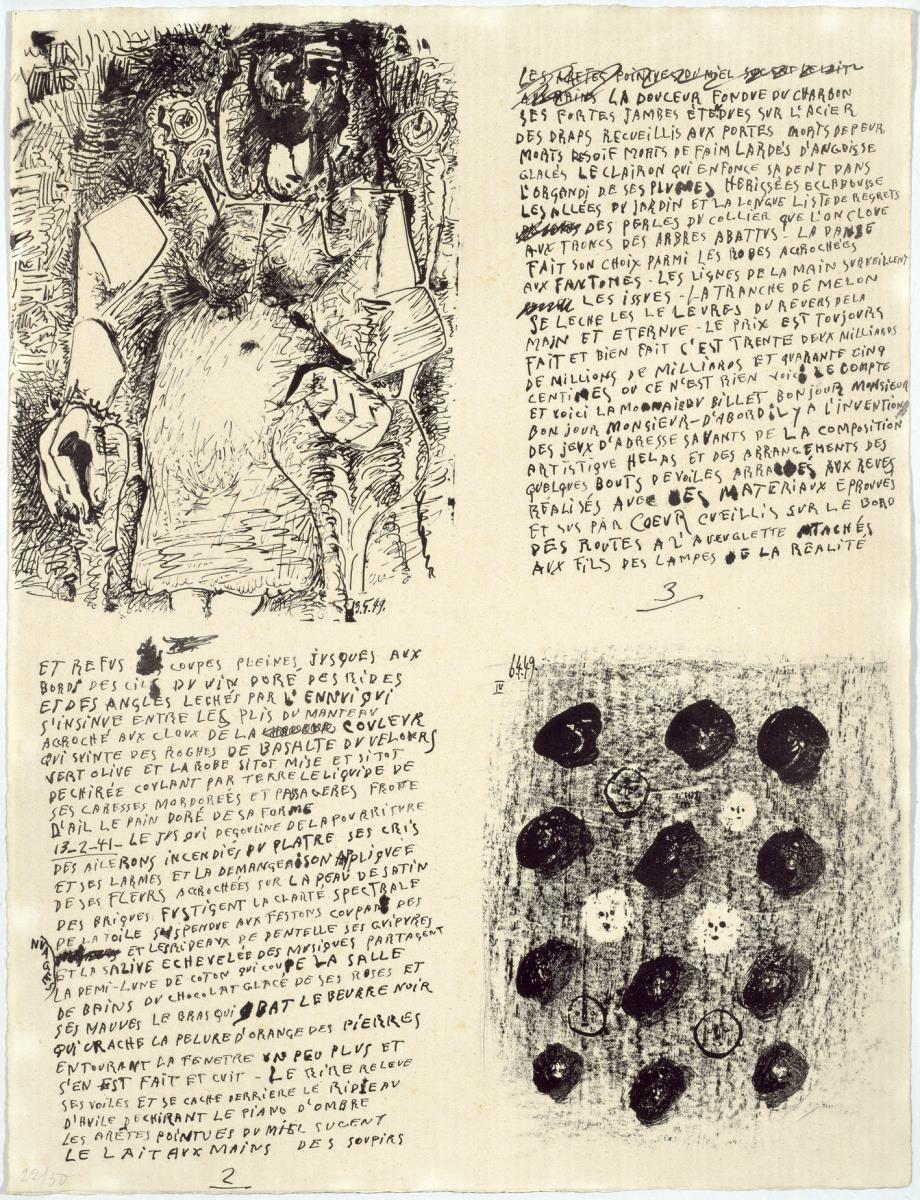 19.5.49.
LES ARÊTES POINTUES DU MIEL SUCENT LE LAIT
AUX MAINS LA DOUCEUR FONDUE DU CHARBON
SES FORTES JAMBES ÉTENDUES SUR L'ACIER
DES DRAPS RECUEILLIS AUX PORTES MORTS DE PEUR
MORTS DE SOIF MORTS DE FAIM LARDÉS D'ANGOISSE
GLACÉS LE CLAIRON QUI ENFONCE SA DENT DANS
L'ORGANDI DE SES PLUMES HÉRISSÉES ECLABOUSSE
LES ALLÉES DU JARDIN ET LA LONGUE LISTE DE REGRETS
DES PERLES DU COLLIER QUE L'ON CLOUE
AUX TRONCS DES ARBRES ABATTUS - LA DANSE
FAIT SON CHOIX PARMI LES ROBES ACCROCHÉES
AUX FANTÔMES - LES LIGNES DE LA MAIN SURVEILLENT
LES ISSUES - LA TRANCHE DE MELON
SE LECHE LES LE LEVRES DU REVERS DE LA
MAIN ET ETERNUE - LE PRIX EST TOUJOURS
FAIT ET BIEN FAIT C'EST TRENTE DEUX MILLIARDS
DE MILLIONS DE MILLIARDS ET QUARANTE CINQ
CENTIMES OU CE N'EST RIEN VOICI LE COMPTE
ET VOICI LA MONNAIE DU BILLET BONJOUR MONSIEUR
BONJOUR MONSIEUR - D'ABORD IL Y A L'INVENTION
DES JEUX D'ADRESSE SAVANTS DE LA COMPOSITION
ARTISTIQUE HELAS ET DES ARRANGEMENTS DES
QUELQUES BOUTS DE VOILES ARRACHÉS AUX REVES
RÉALISÉS AVEC DES MATERIAUX ÉPROUVÉS
ET SUS PAR COEUR CUEILLIS SUR LE BORD
DES ROUTES A L'AVEUGLETTE ATTACHÉS
AUX FILS DES LAMPES DE LA RÉALITÉ
3
ET REFUS COUPES PLEINES JUSQUES AUX
BORDS DES CILS DU VIN DORÉ DES RIDES
ET DES ANGLES LECHÉS PAR L'ENNUI QUI
S'INSINUE ENTRE LES PLIS DU MANTEAU
ACROCHÉ AUX CLOUX DE LA COULEUR
QUI SUINTE DES ROCHES DE BASALTE DU VELOURS
VERT OLIVE ET LA ROBE SITOT MISE ET SITOT
DECHIRÉE COULANT PAR TERRE LE LIQUIDE DE
SES CARESSES MORDORÉES ET PASSAGERES FROTTE
D'AIL LE PAIN DORÉ DE SA FORME
13-2-41 - LE JUS QUI DEGOULINE DE LA POURRITURE
DES AILERONS INCENDIÉS DU PLATRE SES CRIS
ET SES LARMES ET LA DEMANGEAISON APPLIQUÉE
DE SES FLEURS ACCROCHÉES SUR LA PEAU DE SATIN
DES BRIQUES FUSTIGENT LA CLARTÉ SPECTRALE
DE LA TOILE SUSPENDUE AUX FESTONS COUPANTS DES
NUAGES ET LES RIDEAUX DE DENTELLE SES GUIPURES
ET LA SALIVE ECHEVELÉE DES MUSIQUES PARTAGENT
LA DEMI-LUNE DE COTON QUI COUPE LA SALLE
DE BAINS DU CHOCOLAT GLACÉ DE SES ROSES ET
SES MAUVES LE BRAS QUI BAT LE BEURRE NOIR
QUI CRACHE LA PELURE D'ORANGE DES PIERRES
ENTOURANT LA FENETRE UN PEU PLUS ET
S'EN EST FAIT ET CUIT - LE RIRE RELEVE
SES VOILES ET SE CACHE DERRIERE LE RIDEAU
D'HUILE DECHIRANT LE PIANO D'OMBRE
LES ARÊTES POINTUES DU MIEL SUCENT
LE LAIT AUX MAINS DES SOUPIRS
2
22/50
6.4.49.
IV